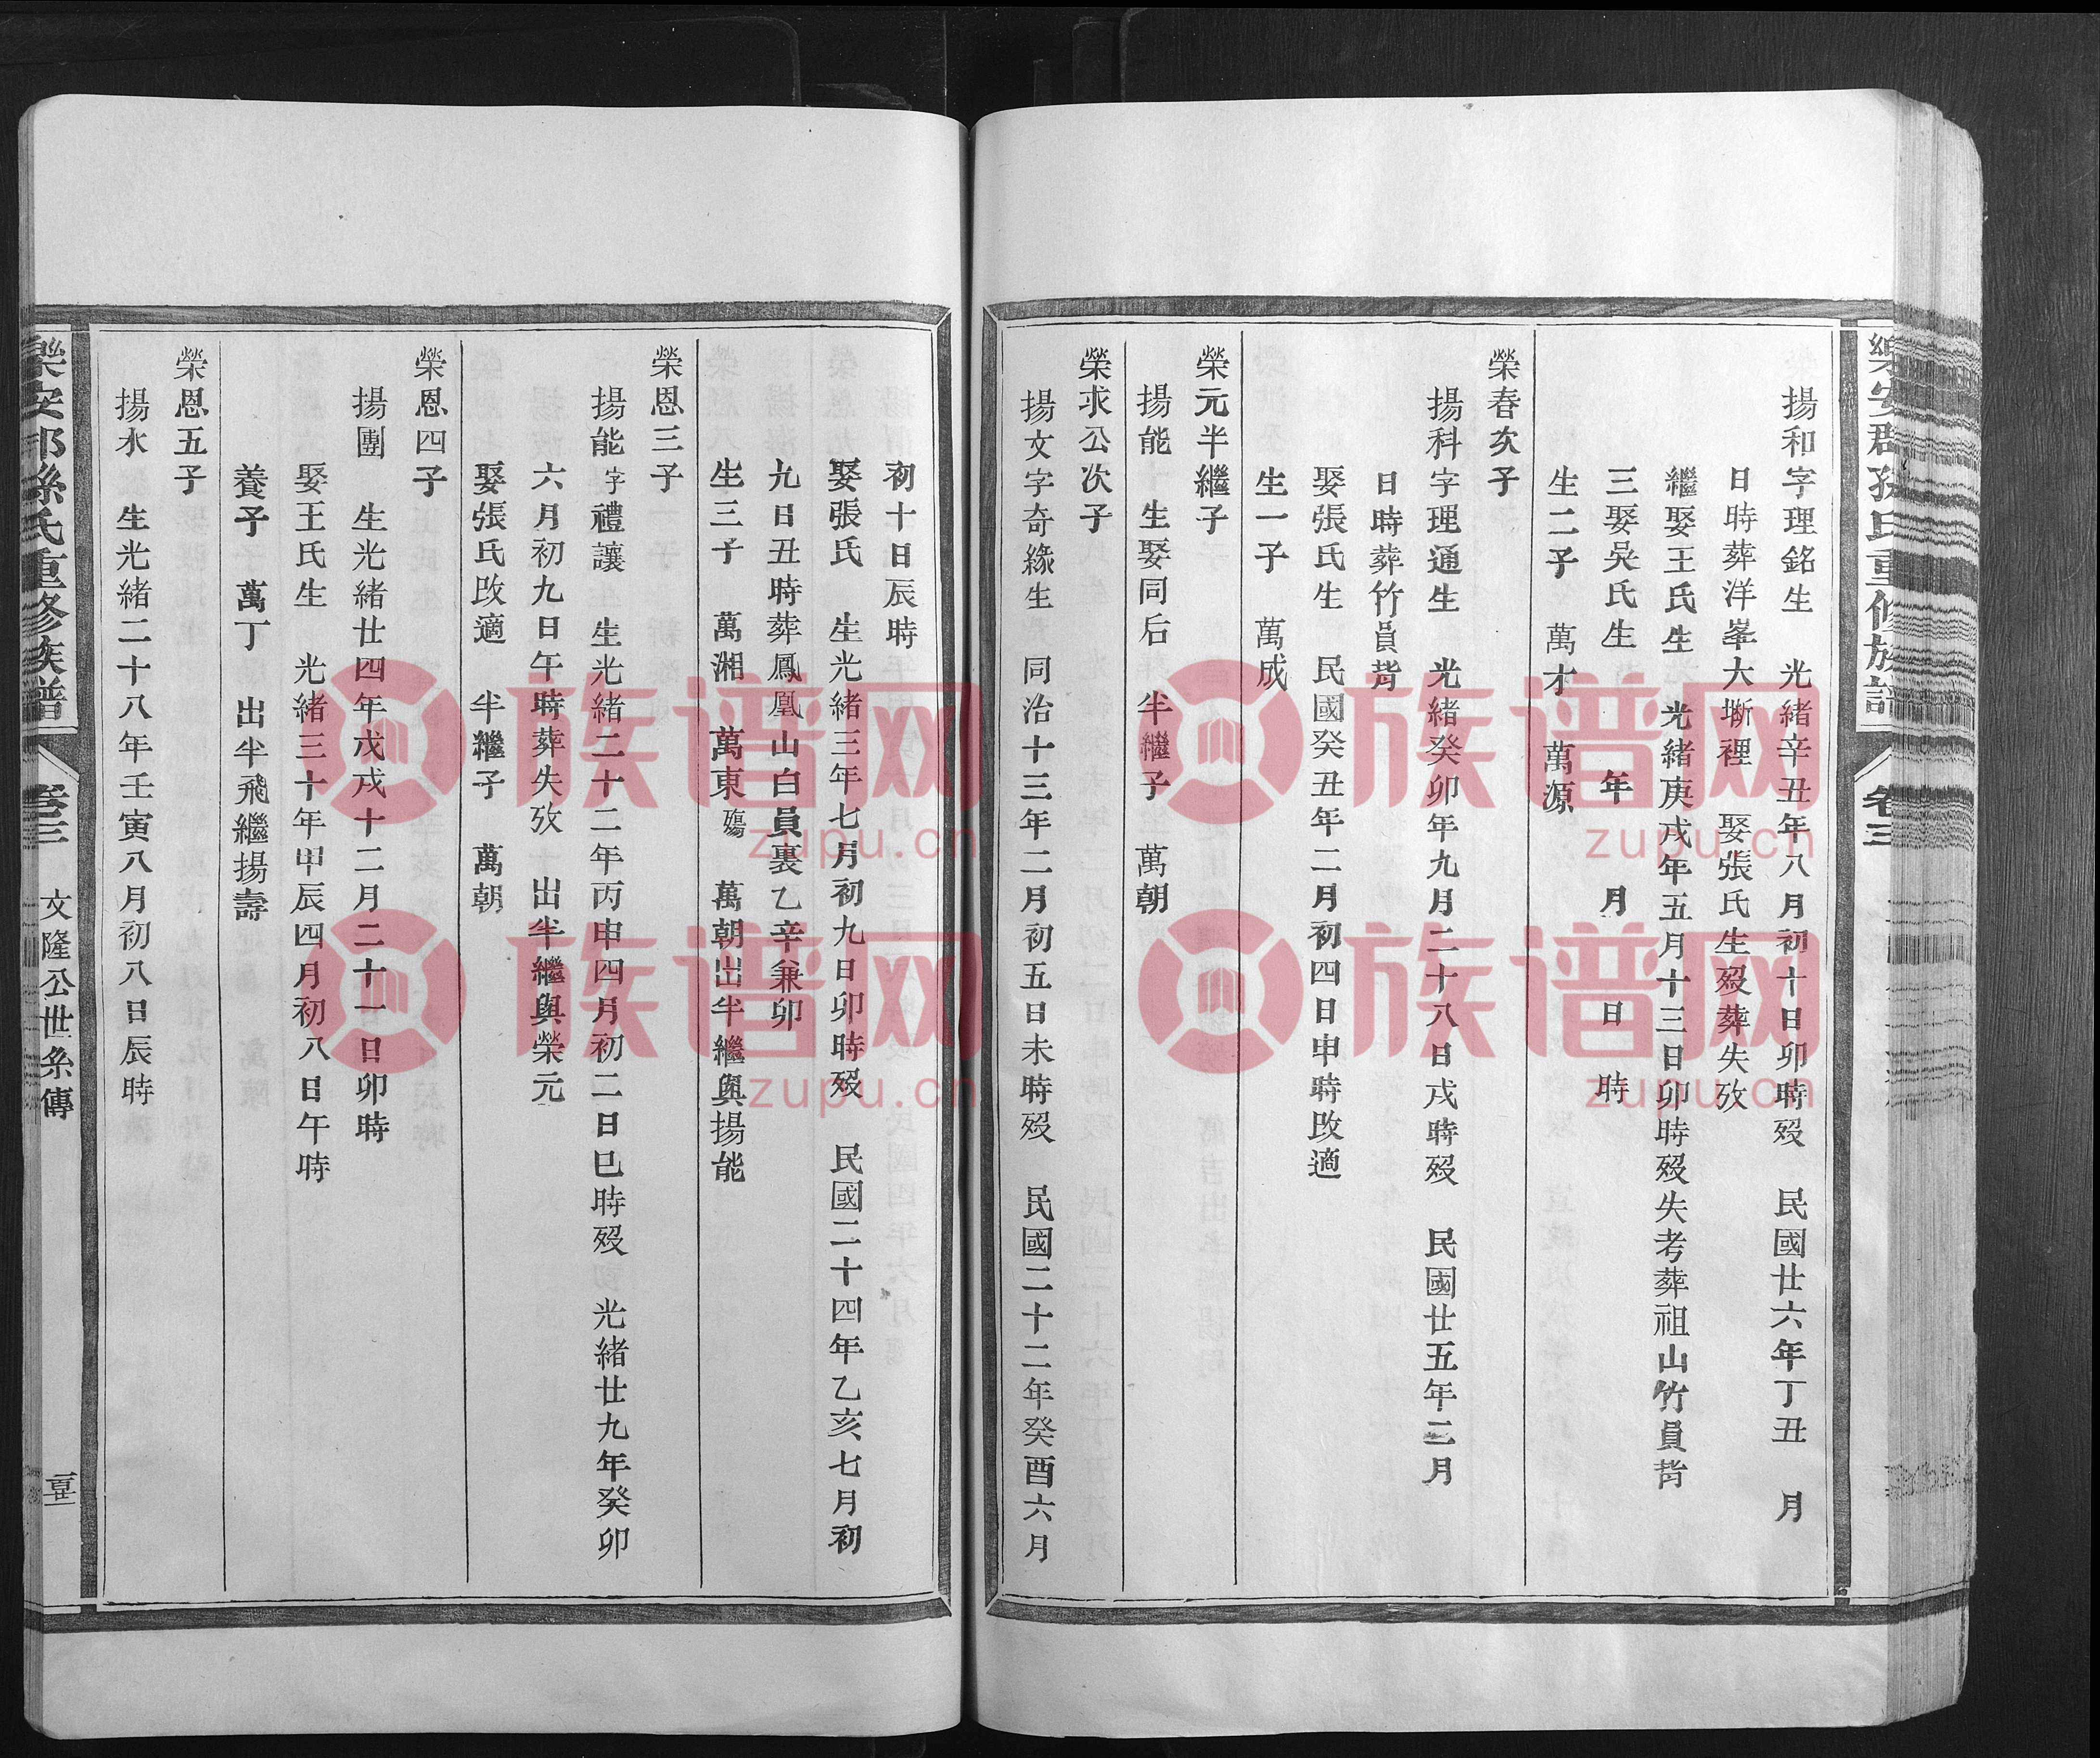 樂安郡孫氏重修族譜 卷三
揚和字理銘生 光緒辛丑年八月初十日卯時歿 民國廿六年丁丑 月
日時葬洋峯大塹裡 娶張氏生歿葬失攷
繼娶王氏生 光緒庚戌年五月十三日卯時歿失考葬祖山竹員背
三娶吳氏生 年 月 日 時
生二子 萬才 萬源
榮春次子
揚科字理通生 光緒癸卯年九月二十八日戌時歿 民國廿五年二月
日時葬竹員背
娶張氏生 民國癸丑年二月初四日申時改適
生一子 萬成
榮元半繼子
揚能 生娶同后 半繼子 萬朝
榮求公次子
揚文字奇緣生 同治十三年二月初五日未時歿 民國二十二年癸酉六月
初十日辰時
娶張氏 生光緒三年七月初九日卯時歿 民國二十四年乙亥七月初
九日丑時葬鳳凰山白員裏乙辛兼卯
生三子 萬湘 萬東殤 萬朝出半繼與揚能
榮恩三子
揚能字禮讓 生光緒二十二年丙申四月初二日巳時歿 光緒廿九年癸卯
六月初九日午時葬失攷 出半繼與榮元
娶張氏改適 半繼子 萬朝
榮恩四子
揚團 生光緒廿四年戊戌十二月二十一日卯時
娶王氏生 光緒三十年甲辰四月初八日午時
養子 萬丁 出半飛繼揚壽
榮恩五子
揚水 生光緒二十八年壬寅八月初八日辰時
樂安郡孫氏重修族譜 卷三 文隆公世系傳
族谱网 zupu.cn
族谱网 zupu.cn
族谱网 zupu.cn
族谱网 zupu.cn